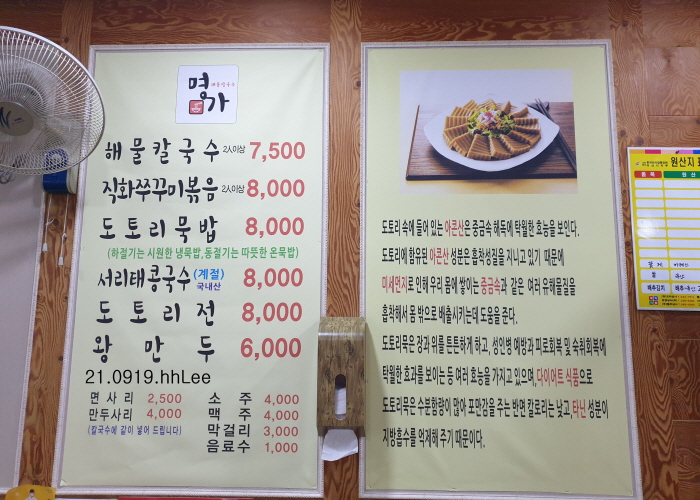 명가
해물칼국수 2人이상 7,500
직화쭈꾸미볶음 2人이상 8,000
도토리묵밥 8,000
(하절기는 시원한 냉묵밥,동절기는 따뜻한 온묵밥)
서리태콩국수 (계절) 국내산 8,000
도토리전 8,000
왕만두 6,000
21.0919.hhLee
면사리 2,500
만두사리 4,000
(칼국수에 같이 넣어 드립니다)
소주 4,000
맥주 4,000
막걸리 3,000
음료수 1,000
도토리 속에 들어 있는 아콘산은 중금속 해독에 탁월한 효능을 보인다.
도토리에 함유된 아콘산 성분은 흡착성질을 지니고 있기 때문에
미세먼지로 인해 우리 몸에 쌓이는 중금속과 같은 여러 유해물질을
흡착해서 몸 밖으로 배출시키는데 도움을 준다.
도토리묵은 장과 위를 튼튼하게 하고, 성인병 예방과 피로회복 및 숙취회복에
탁월한 효과를 보이는 등 여러 효능을 가지고 있으며, 다이어트 식품으로
도토리묵은 수분함량이 많아 포만감을 주는 반면 칼로리는 낮고, 타닌 성분이
지방흡수를 억제해 주기 때문이다.
원산지
품목
배추김치